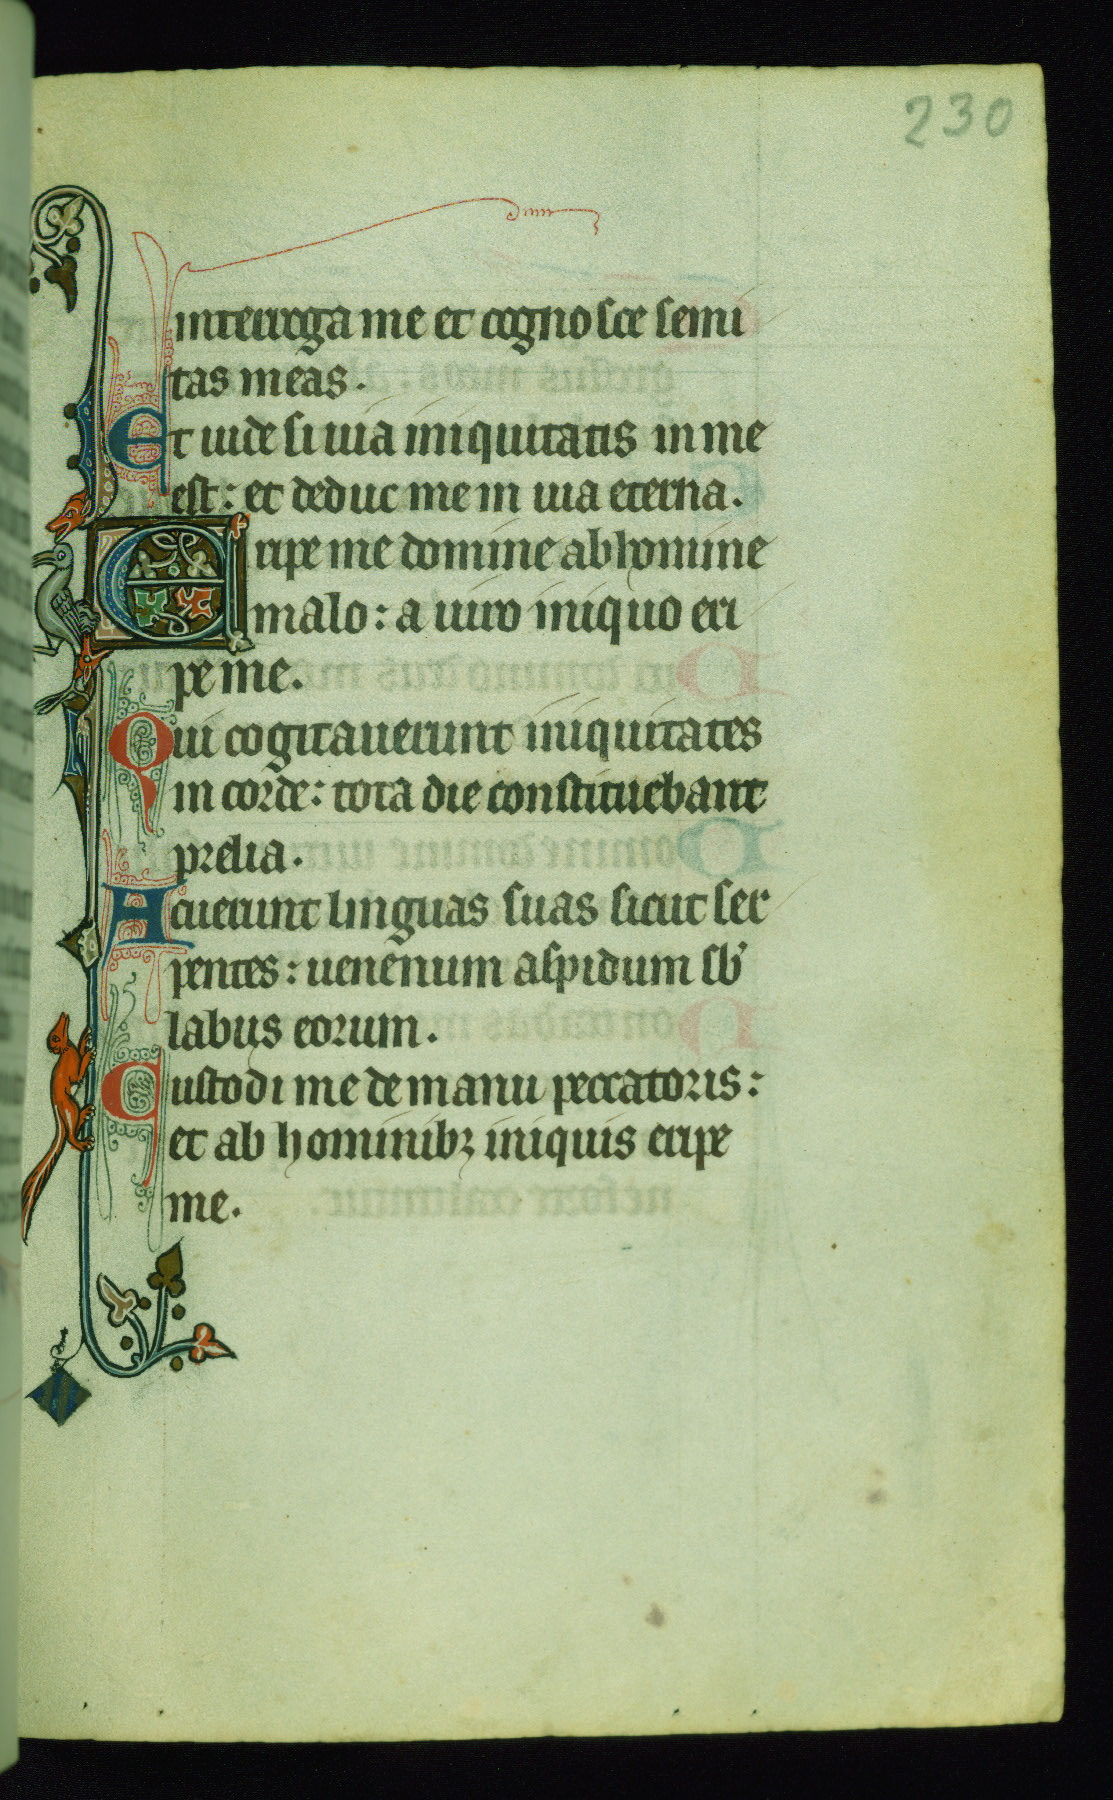 230
interroga me et cognosce semi
tas meas.
Et uide si uia iniquitatis in me
est: et deduc me in uia eterna.
Eripe me domine ab homine
malo: a uiro iniquo eri
pe me.
Qui cogitauerunt iniquitates
in corde: tota die constituebant
prelia.
Acuerunt linguas suas sicut ser
pentes: uenenum aspidum sb'
labus eorum.
Custodi me de manu peccatoris:
et ab hominibꝫ iniquis eripe
me.